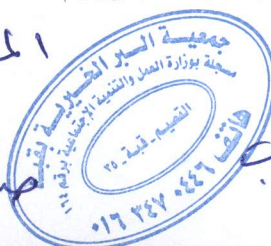 جمعية البر الخيرية بقبة
مسجلة بوزارة العمل والتنمية الإجتماعية برقم ١١٤
القصيم - قبة - ٢٥
هاتف ٠٤٤٦ ٣٤٧ ٠١٦